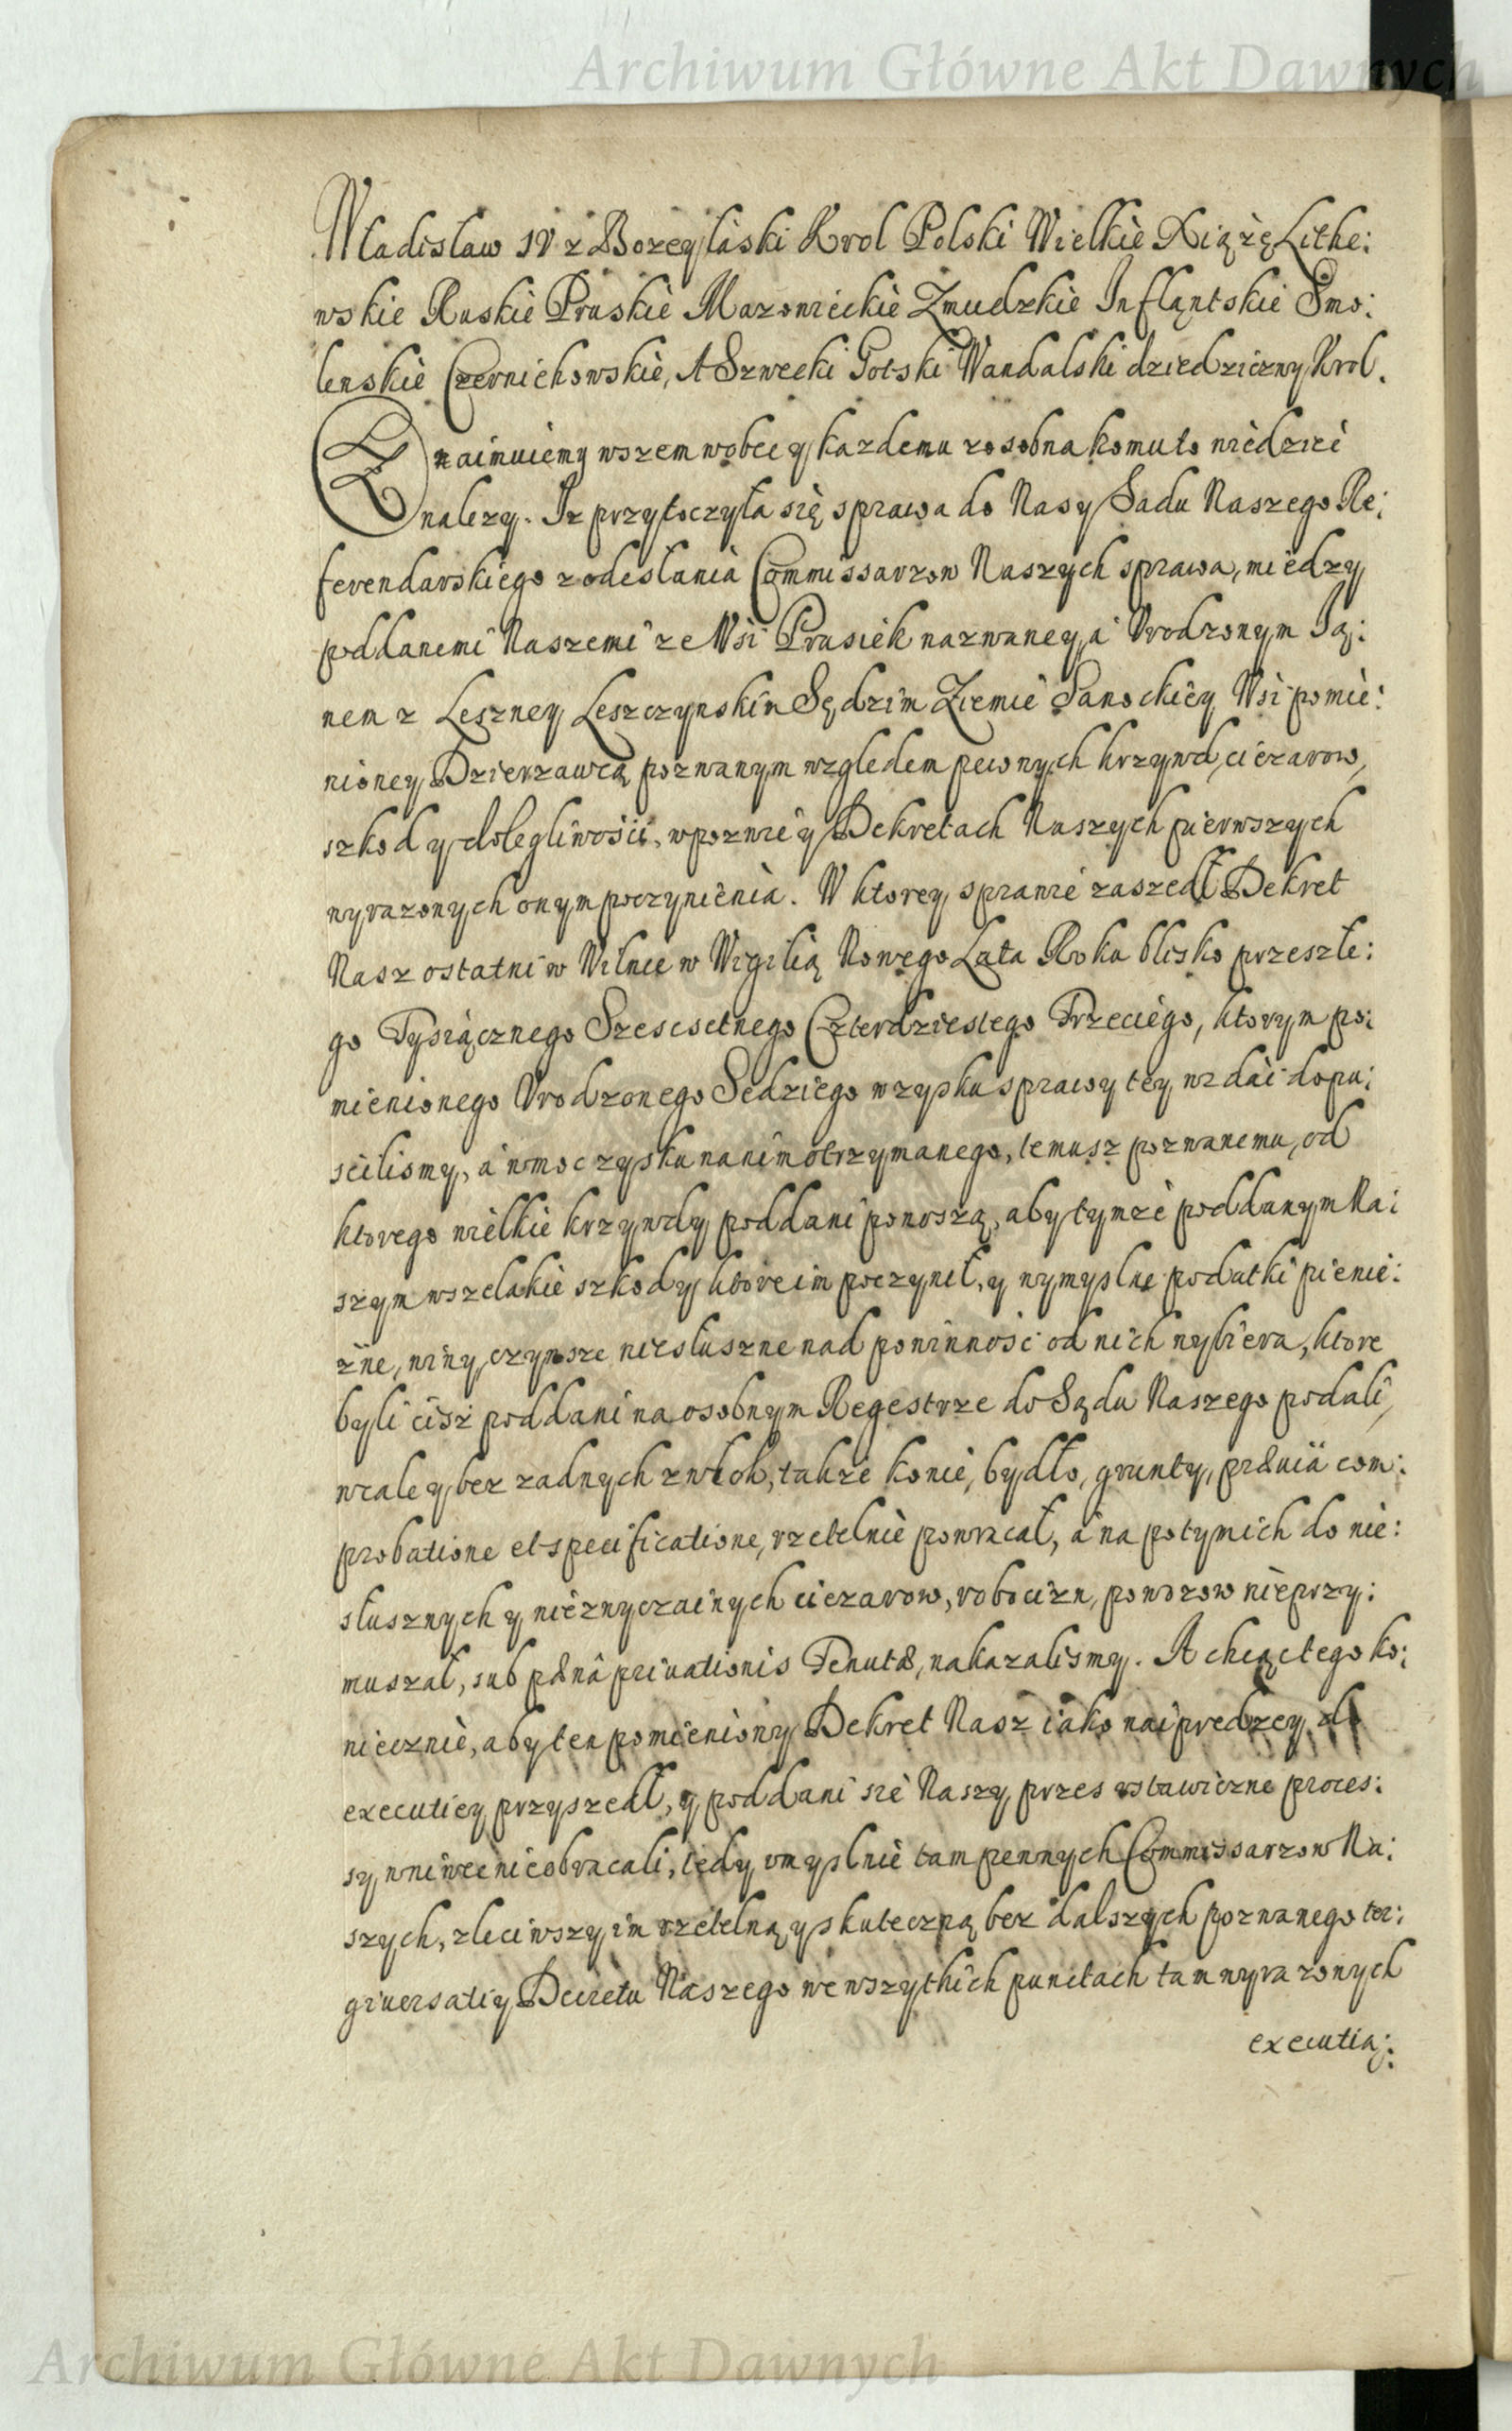 Archiwum Główne Akt Dawnych
Wladislaw IV z Bozey łaski Krol Polski Wielkie Xiążę Lithe:
wskie Ruskie Pruskie Mazowieckie Zmudzkie Inflantskie Smo:
lenskie Czernichowskie, A Szwecki Gotski Wandalski dziedziczny Krol.
Znaimuiemy wszem wobec y kazdemu zosobna komu to wiedziec
nalezy. Iz przytoczyła się sprawa do Nas y Sadu Naszego Re:
ferendarskiego z odesłania Commissarzow Naszych sprawa, miedzy
poddanemi Naszemi ze Wsi Prusiek nazwaney, a Vrodzonym Ia:
nem z Leszney Leszczynskim Sędzim Ziemie Sanockiey Wsi pomie:
nioney Dzierzawcą pozwanym względem pewnych krzywd, ciezarow,
szkod y dolegliwosci, w pozwie y Dekretach Naszych pierwszych
wyrazonych onym poczynienia. W ktorey sprawie zaszedł Dekret
Nasz ostatni w Wilnie w Wigilią Nowego Lata Roku blisko przeszłe:
go Tysiącznego Szescsetnego Czterdziestego Trzeciego, ktorym po:
mienionego Vrodzonego Sedziego w zysku sprawy tey wzdać dopu:
scilismy, a w moc zysku na nim otrzymanego, temusz pozwanemu, od
ktorego wielkie krzywdy poddani ponoszą, aby tymze poddanym Na:
szym wszelakie szkody ktore im poczynił, y wymyslne podatki pienie:
zne, winy, czynsze niesłuszne nad powinnosc od nich wybiera, ktore
byli cisz poddani na osobnym Regestrze do Sądu Naszego podali,
wcale y bez zadnych zwłok, takze konie, bydło, grunty, præuia com:
probatione et specificatione, rzetelnie powracał, a na potym ich do nie:
słusznych y niezwyczainych ciezarow, robocizn, powozow nieprzy:
muszał, sub pæna priuationis Tenutæ, nakazalismy. A chcąc tego ko:
niecznie, aby ten pomieniony Dekret Nasz iako naipredzey do
executiey przyszedł, y poddani sie Naszy przes vstawiczne proces:
sy wniwec nieobracali, tedy vmyslnie tam pewnych Commissarzow Na:
szych, zleciwszy im rzetelną y skuteczną bez dalszych pozwanego ter:
giuersatiy Decretu Naszego we wszytkich punctach tam wyrazonych
executią:
Archiwum Główne Akt Dawnych